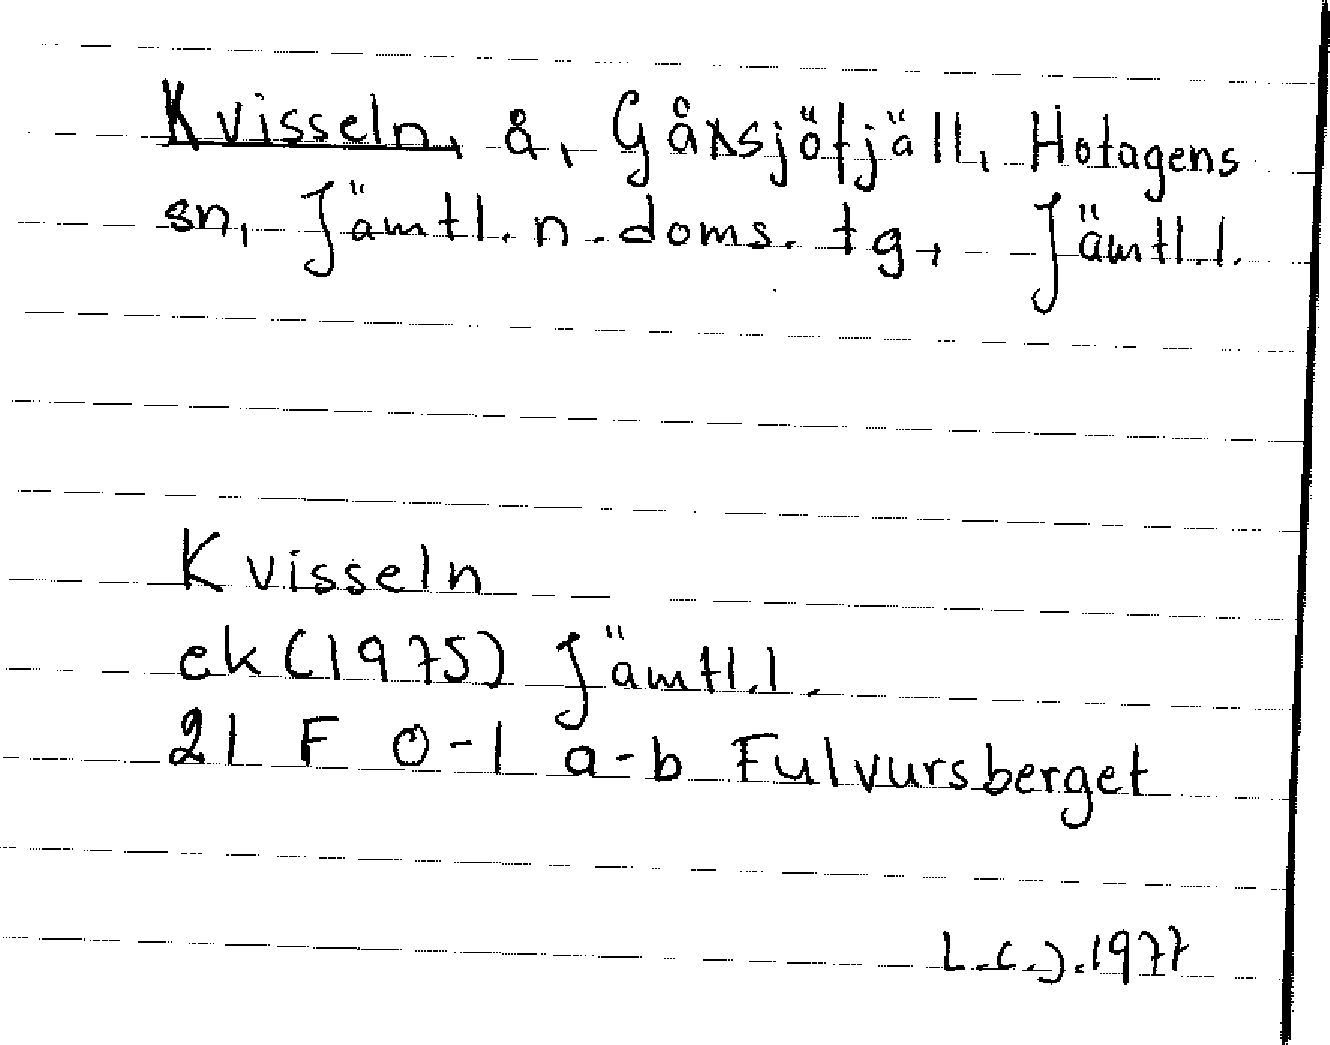 Kvisseln, å, Gåxsjöfjäll, Hotagens
sn, Jämtl. n. doms. tg, Jämtl.l.
Kvisseln
ek (1975) Jämtl.l.
21 F 0-1 a-b Fulvursberget
L.C.J. 1977